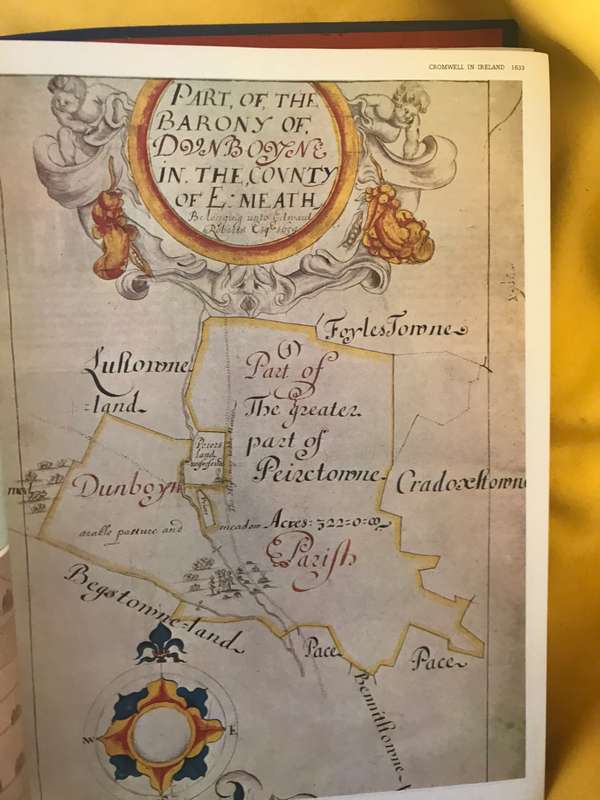 CROMWELL IN IRELAND 1633
PART, OF, THE
BARONY OF,
DVNBOYNE
IN, THE, COVNTY
OF E: MEATH
Belonging unto Edward
Roberts Esqr 1659
FoylesTowne
Lustowne
=land
(1)
Part of
The greater
part of
Peirctowne
land
Dunboyn
Cradoxtowne
arable pasture and
meadow Acres: 322=0=00
Parish
Begstowne=land
Pace
Pace
Bennitstowne
W
E